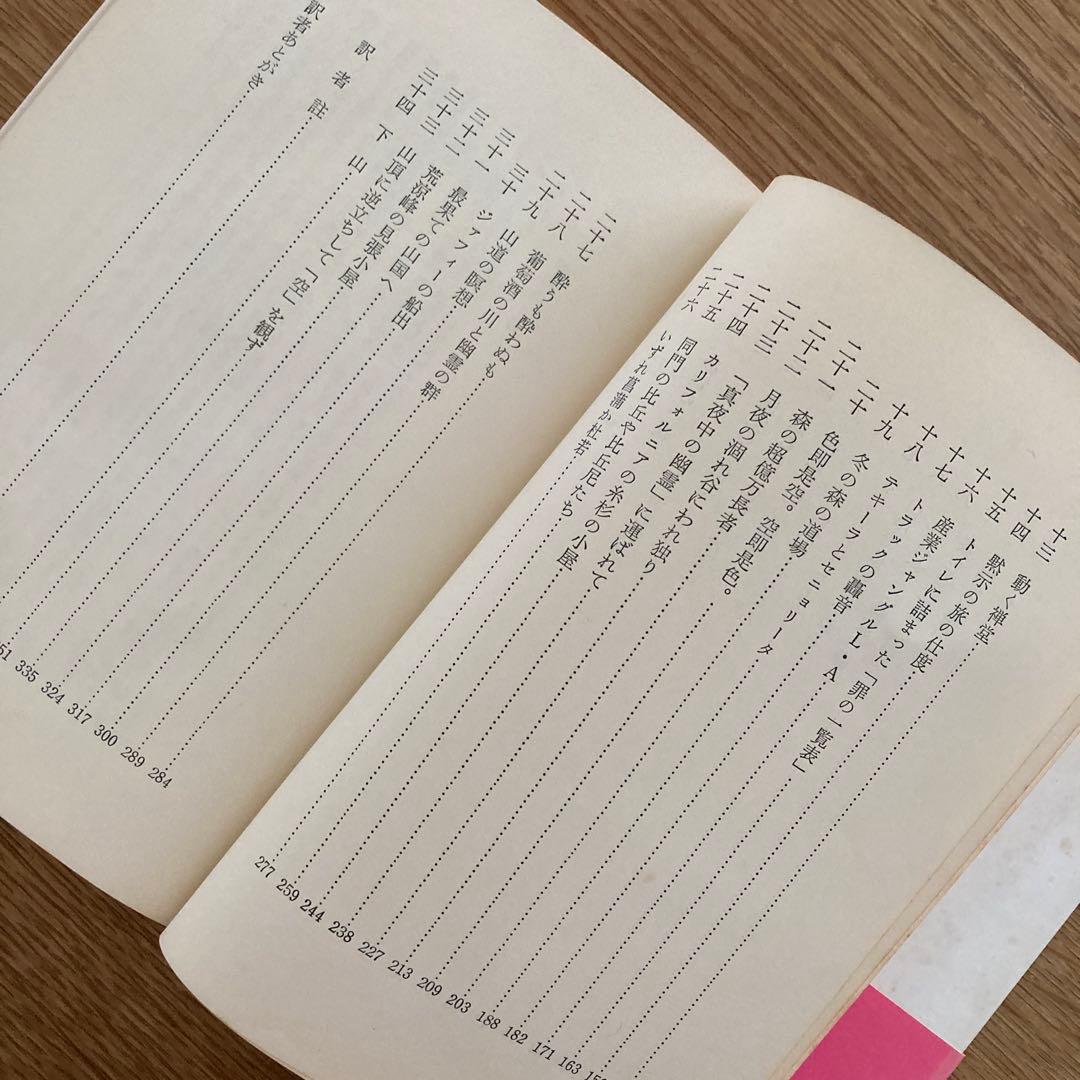 十三 動く禅堂
十四 黙示の旅の仕度
十五 トイレに詰まった「罪の一覧表」 163
十六 産業ジャングルL・A 171
十七 トラックの轟音 182
十八 テキーラとセニョリータ 188
十九 冬の森の道場 203
二十 色即是空。空即是色。 209
二十一 森の超億万長者 213
二十二 月夜の涸れ谷にわれ独り 227
二十三 「真夜中の幽霊」に運ばれて 238
二十四 カリフォルニアの糸杉の小屋 244
二十五 同門の比丘や比丘尼たち 259
二十六 いずれ菖蒲か杜若 277
二十七 酔うも酔わぬも 284
二十八 葡萄酒の川と幽霊の群 289
二十九 山道の瞑想 300
三十 ジァフィーの船出 317
三十一 最果ての山国へ 324
三十二 荒涼峰の見張小屋 335
三十三 山頂に逆立ちして「空」を観ず 51
三十四 下山
訳者註
訳者あとがき